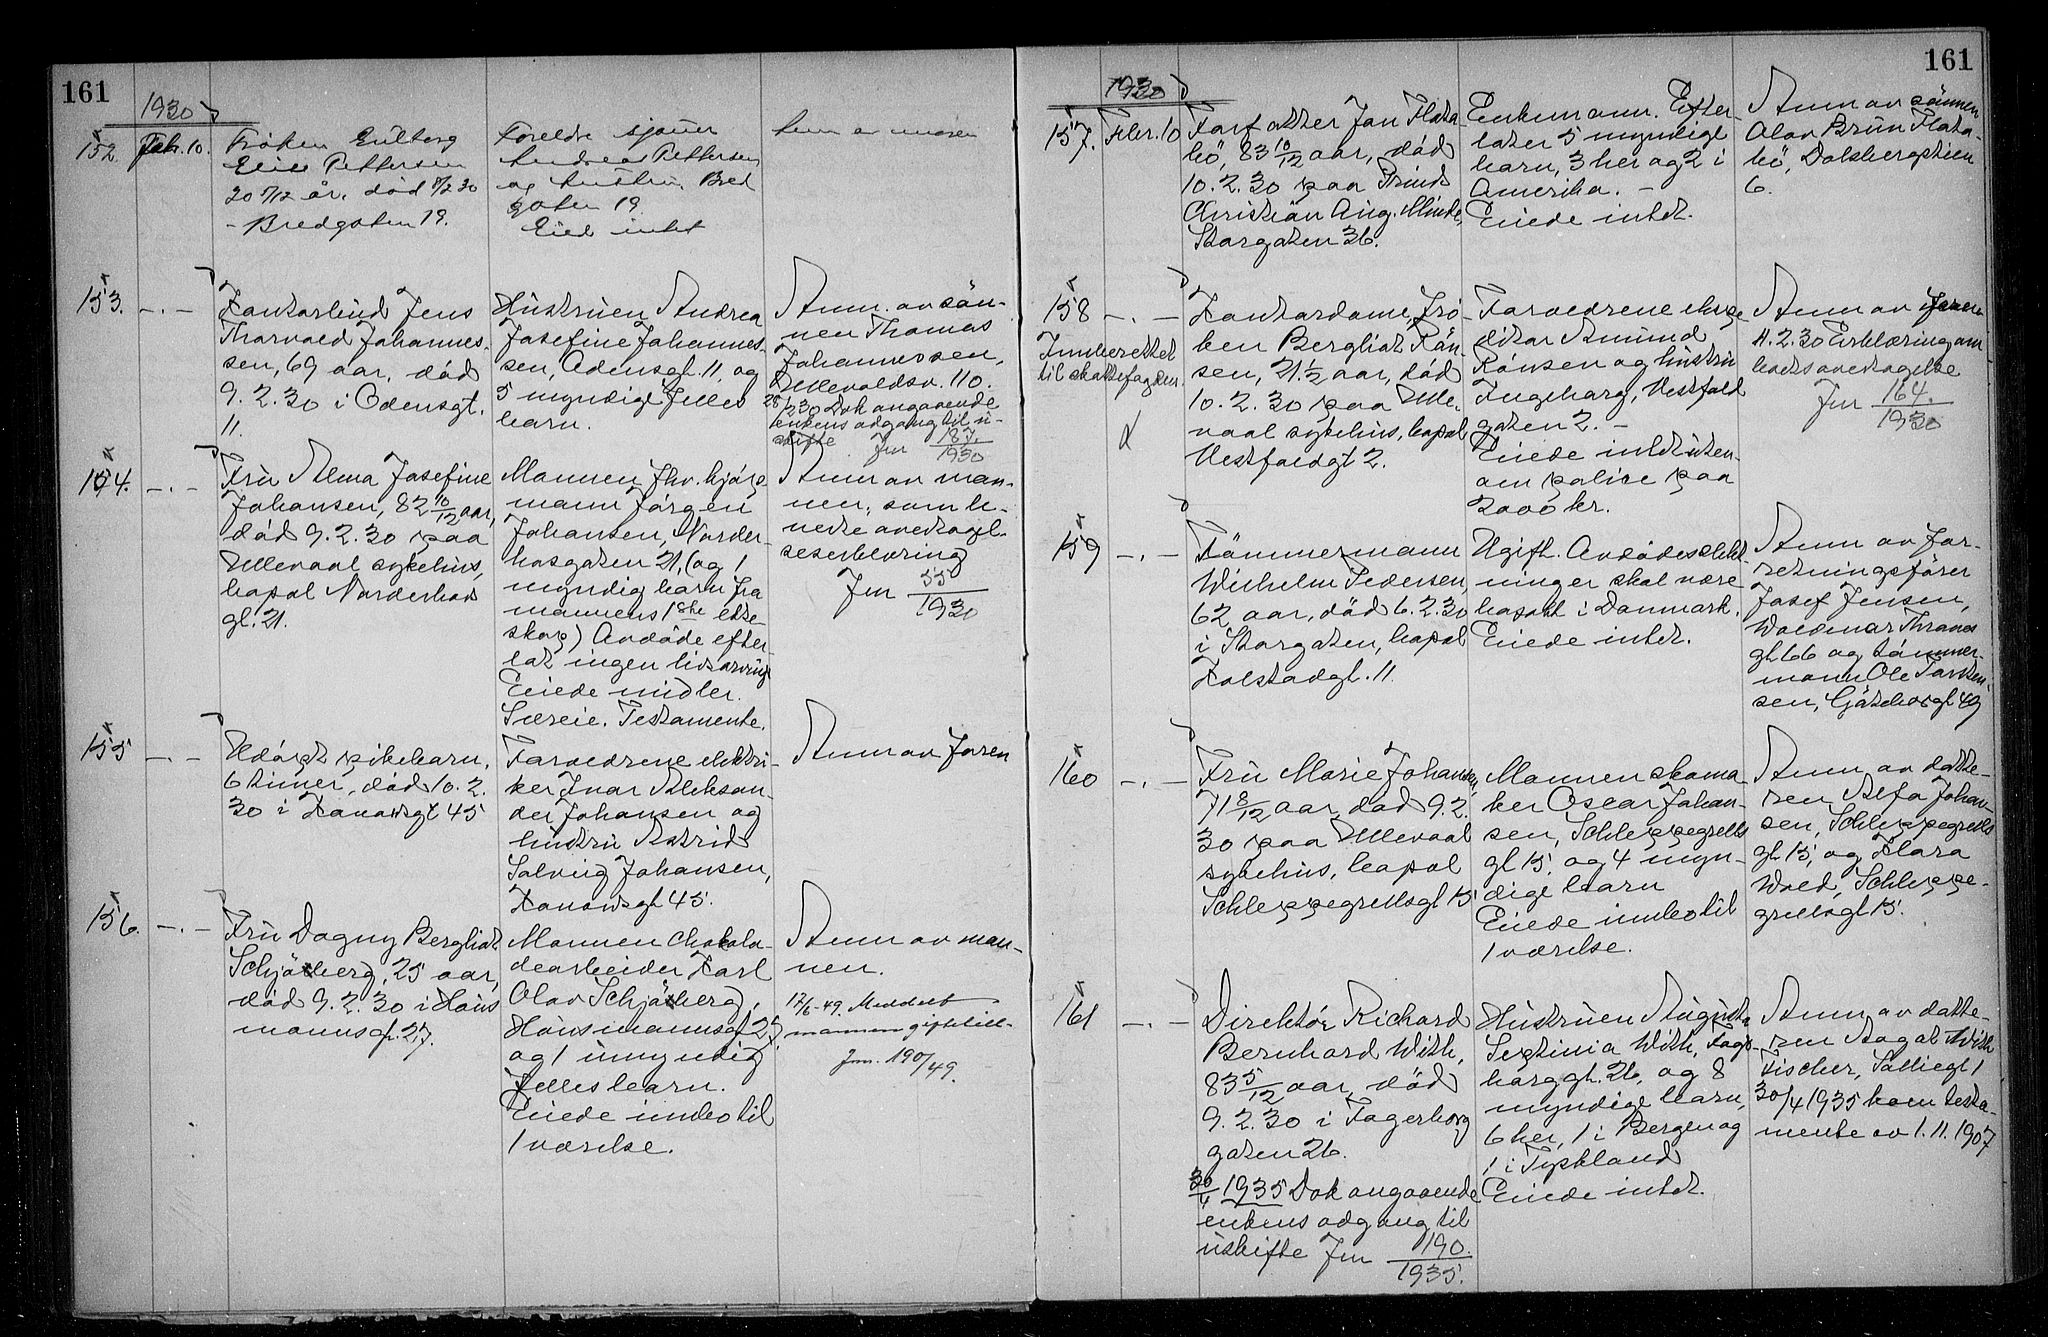 161
1930
152. Febr. 10.
Frøken Gulborg
Elise Pettersen
20 7/12 år, død 8/2 30
- Bredgaten 19.
Foreldre sjauer
Andreas Pettersen
og hustru, Bred
gaten 19
Eied intet
Anm av moren
153. -.-
Kontorbud Jens
Thorvald Johannes-
sen, 69 aar, død
9.2.30 i Odensgt.
11.
Hustruen Andrea
Josefine Johannes-
sen, Odensgt. 11, og
5 myndige felles
barn.
Anm. av søn-
nen Thomas
Johannessen,
Ullevoldsv. 110.
30 Dok angaaende
enkens adgang til u-
skifte Jnr 187/1930
154. -.-
Fru Alma Josefine
Johansen, 82 10/12 aar,
død 9.2.30 paa
Ullevaal sykehus,
bopæl Norderhovs
gt. 21.
Mannen fhv. kjøp-
mann Jørgen
Johansen, Norder-
hovsgaten 21, (og 1
myndig barn fra
mannens 1ste ekte-
skap) Avdøde efter-
lot ingen livsarving
Eiede midler.
Særeie. Testamente.
Anm av man-
nen, som le-
verte overtagel-
seserklæring
Jnr 55/1930
155 -.-
Udøpt pikebarn,
6 timer, død 10.2.
30 i Hanovsgt 45
Forældrene elektri-
ker Ivar Aleksan-
der Johansen og
hustru Astrid
Solveig Johansen,
Hanovsgt 45.
Anm av faren
156. -.-
Fru Dagny Bergliot
Schjøtberg, 25 aar,
død 9.2.30 i Haus
mannsgt. 27.
Mannen chokola-
dearbeider Karl
Olav Schjøtberg,
Hausmannsgt 27,
og 1 umyndig
felles barn.
Eiede innbo til
1 værelse.
Anm av man-
nen.
17/6-49. Meddelt
mannen giftetill-
Jnr. 190/49.
161
1930
157. Febr. 10
Forfatter Jon Flata
bø, 83 10/12 aar, død
10.2.30 paa Prinds
Christian Aug. Minde,
Storgaten 36.
Enkemann. Efter-
later 5 myndige
barn, 3 her og 2 i
Amerika. -
Eiede intet.
Anm av sønnen
Olav Brun Flata
bø, Dalsbergstien
6.
158 -.-
Innberettet
til skattefogden.
Kontordame, frø-
ken Bergliot Røn-
sen, 21 1/2 aar, død
10.2.30 paa Ulle-
vaal sykehus, bopæl
Vestfoldgt 2.
Forældrene ekspe
ditør Amund
Rønsen og hustru
Ingeborg, Vestfold
gaten 2. -
Eiede intet uten-
om police paa
2000 kr.
Anm av faren
11.2.30 Erklæring om
boets overtagelse
Jnr 164./1930
159 -.-
Tømmermann
Wilhelm Pedersen,
62 aar, død 6.2.30
i Storgaten, bopæl
Kolstadgt. 11.
Ugift. Avdødes slekt-
ninger skal være
bosatt i Danmark.
Eiede intet.
Anm av for-
retningsfører
Josef Jensen,
Waldemar Thranes
gt 66 og tømmer-
mann Ole Torsten-
sen, Gøteborggt 49
160 -.-
Fru Marie Johansen,
71 8/12 aar, død 9.2.
30 paa Ullevaal
sykehus, bopæl
Schleppegrellsgt 15
Mannen skoma-
ker Oscar Johan-
sen, Schleppegrells
gt 15, og 4 myn-
dige barn
Eiede innbo til
1 værelse.
Anm av datte-
ren Alfa Johan-
sen, Schleppegrells
gt 15, og Klara
Wold, Schleppe-
grellsgt 15.
161 -.-
Direktør Richard
Bernhard With,
83 5/12 aar, død
9.2.30 i Fagerborg
gaten 26.
30/4 1935 Dok angaaende
enkens adgang til
uskifte Jnr 190./1935.
Hustruen Augusta
Septimia With, Fager-
borggt. 26, og 8
myndige barn,
6 her, 1 i Bergen og
1 i Tyskland
Eiede intet.
Anm av datte-
ren Aagot With
Fischer, Solliegt 1
30/4 1935 kom testa-
mente av 1.11.1907